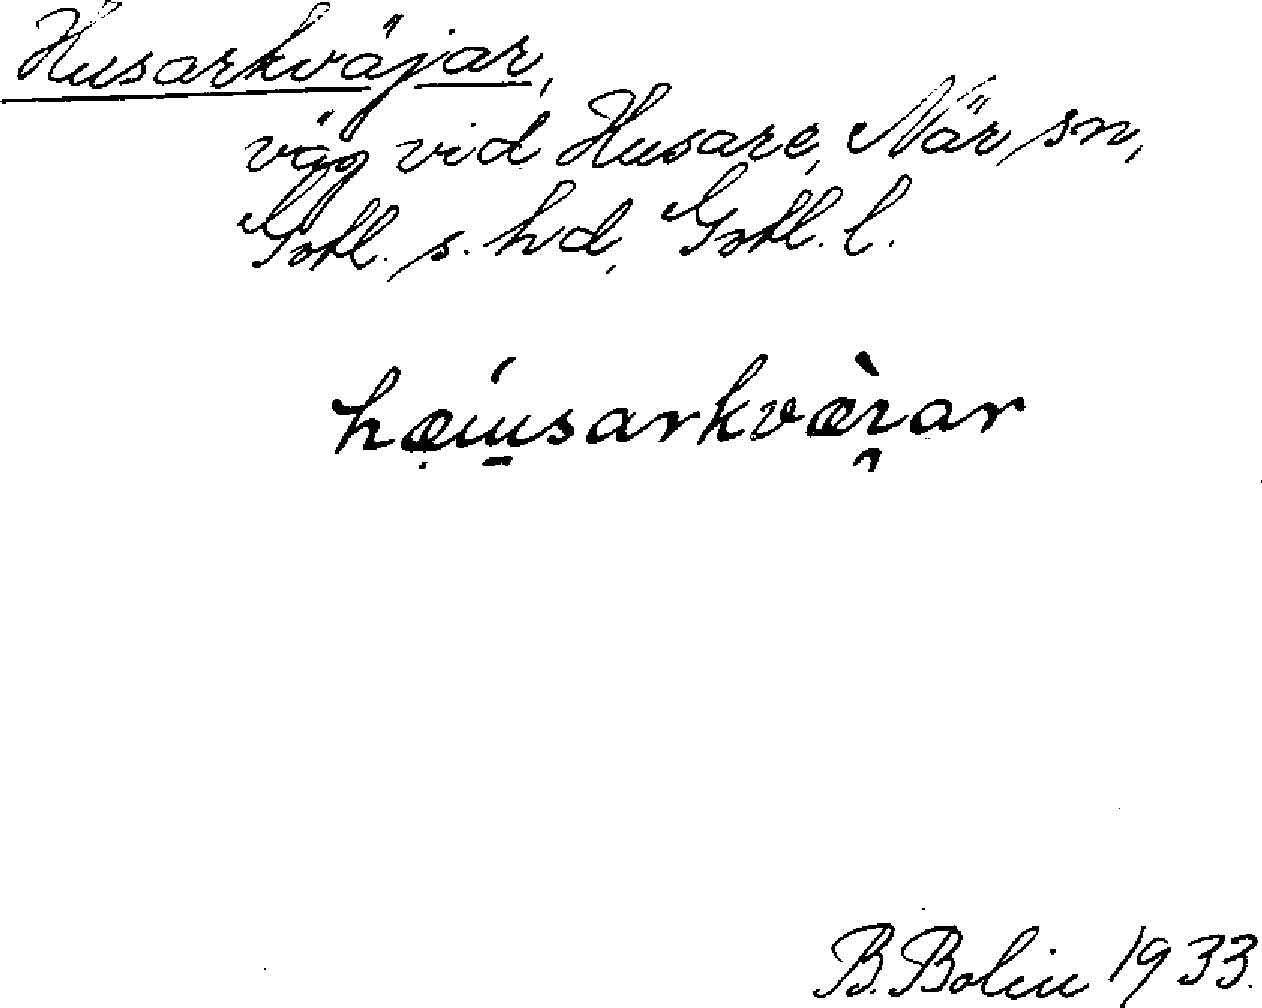 Husarkväjar,
väg vid Husare, När sn,
Gotl. s. hd, Gotl. l.
hæu̱sarkvæ̀ı̯ar
B. Bolin 1933.